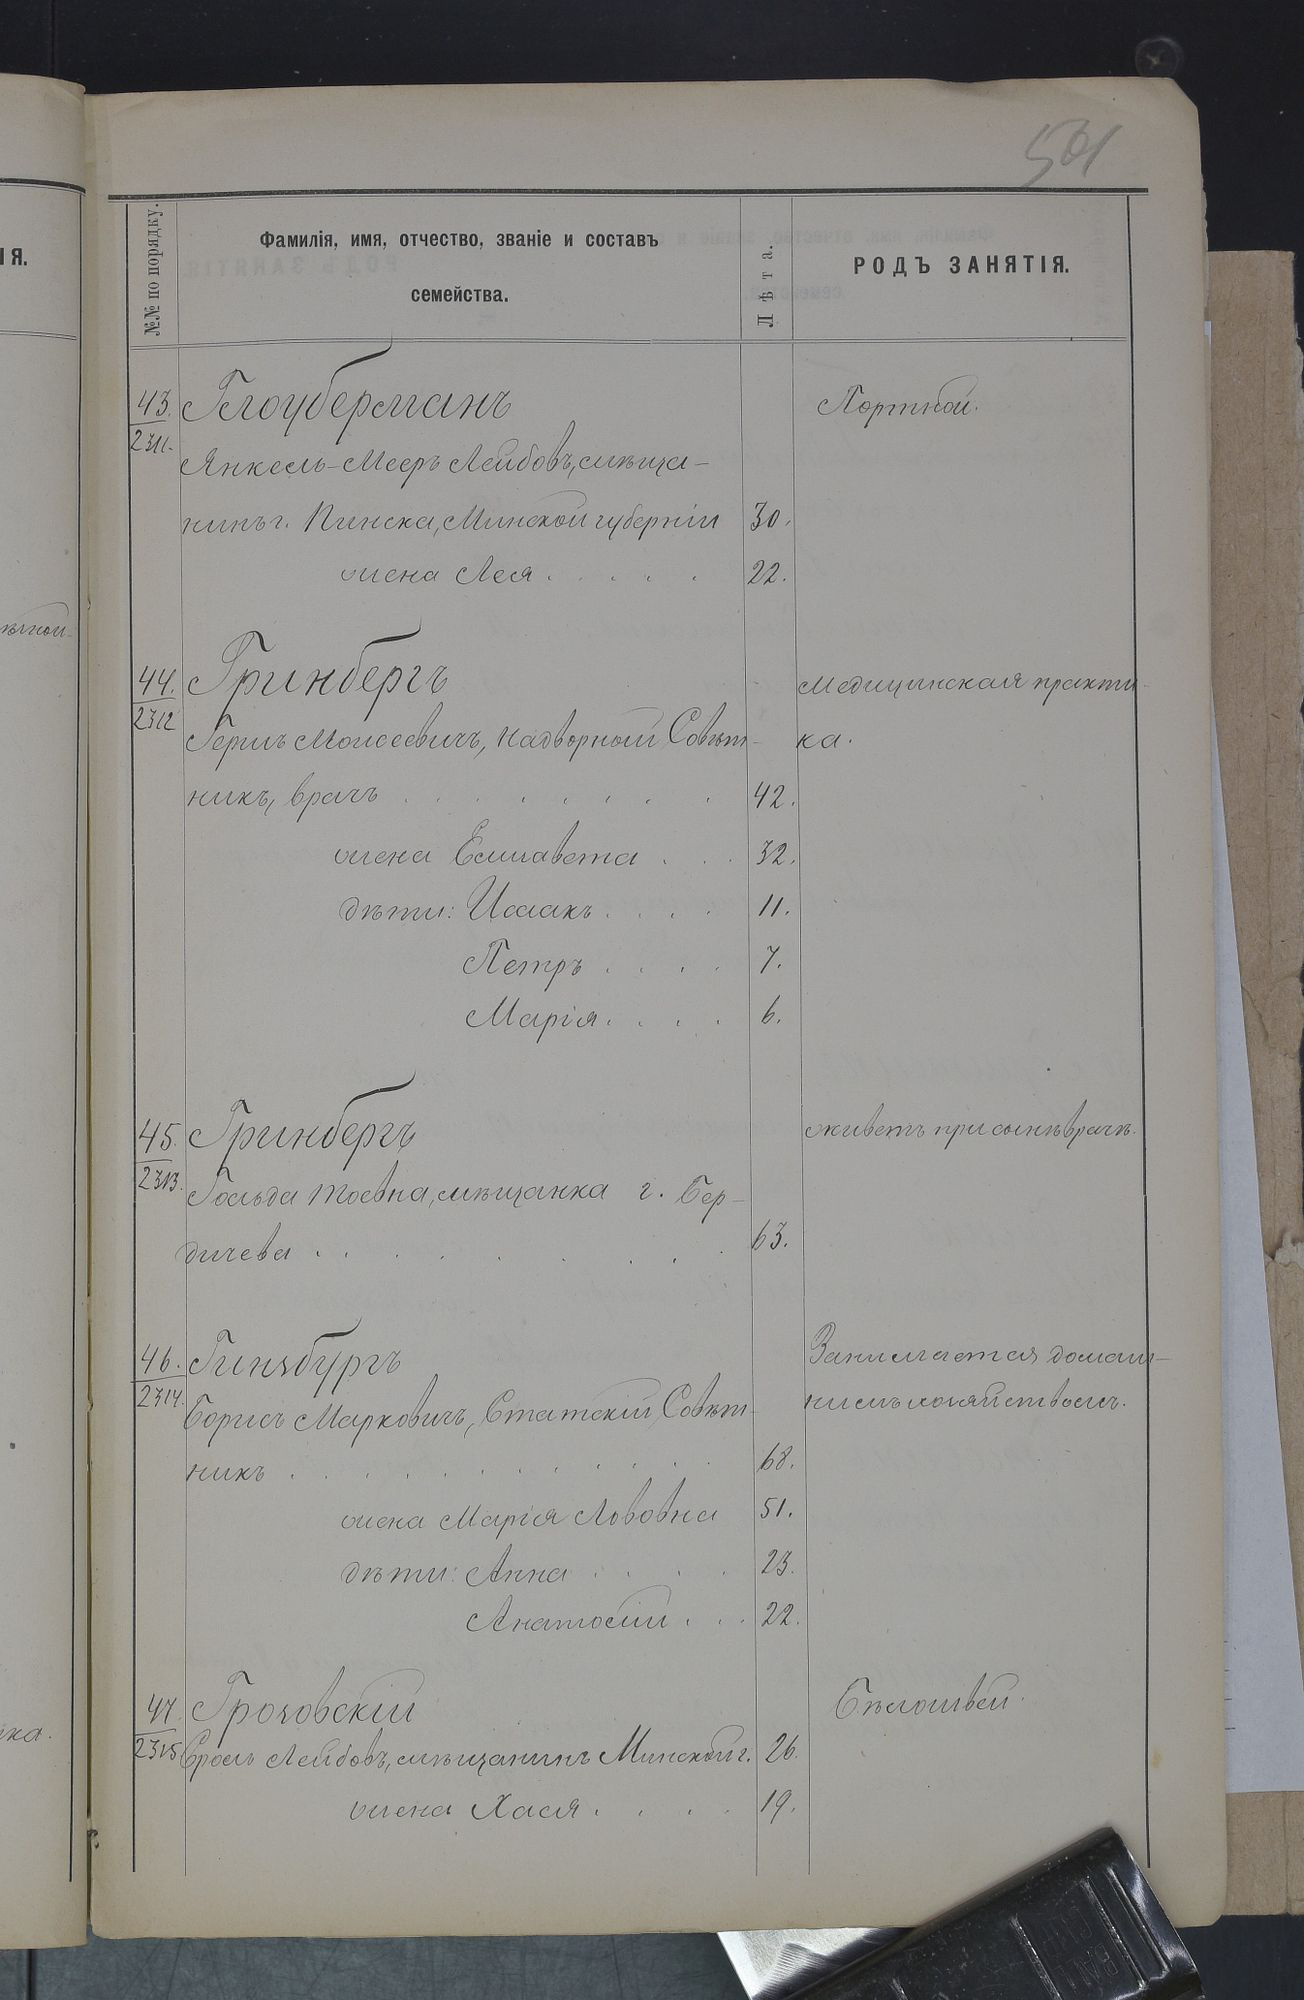 501
№№ по порядку.
Фамилія, имя, отчество, званіе и составъ
семейства.
Лѣта.
РОДЪ ЗАНЯТІЯ.
ІЯ.
43.
2311.
Глоуберманъ
Портной.
Янкель-Мееръ Лейбовъ, мѣща-
нинъ г. Пинска, Минской губерніи 30.
жена Лея . . . . . 22.
44.
2312
Гринбергъ
Медицинская практи-
Германъ Моисеевичъ, Надворный Совѣт-
ка.
никъ, врачъ . . . . . . . . 42.
жена Елизавета . . . 32.
дѣти: Исаакъ . . . . 11.
Петръ . . . . 7.
Марія . . . . 6.
45.
2313.
Гринбергъ
живетъ при сынѣ врачѣ.
Гольда мѣщанка г. Бер-
дичева . . . . . . . . 63.
46.
2314.
Гинзбургъ
Занимается домаш-
Борисъ Марковичъ, Статскій Совѣт-
нимъ хозяйствомъ.
никъ . . . . . . . . . . . 68.
жена Марія Львовна 51.
дѣти: Анна . . . . 23.
Анатолій . . . 22.
47
2315
Грозовскій
Бѣлошвей.
Сроль Лейбовъ, мѣщанинъ Минской г. 26.
жена Хася . . . . 19.